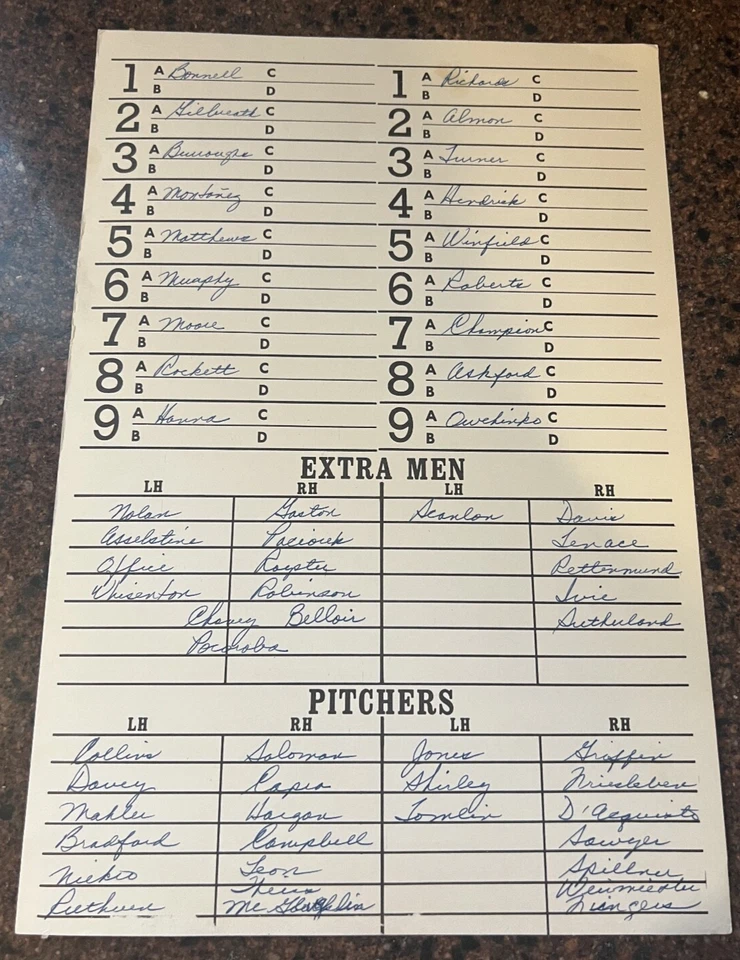 1 A Bonnell C 1 A Richards C
B D B D
2 A Gilbreath C 2 A Almon C
B D B D
3 A Burroughs C 3 A Turner C
B D B D
4 A Montañez C 4 A Hendrick C
B D B D
5 A Matthews C 5 A Winfield C
B D B D
6 A Murphy C 6 A Roberts C
B D B D
7 A Moore C 7 A Champion C
B D B D
8 A Rockett C 8 A Ashford C
B D B D
9 A Hanna C 9 A Owchinko C
B D B D
EXTRA MEN
LH RH LH RH
Nolan Gaston Scanlon Davis
Asselstine Paciorek Tenace
Office Royster Rettenmund
Whisenton Robinson Ivie
Chaney Belloir Sutherland
Pocoroba
PITCHERS
LH RH LH RH
Collins Solomon Jones Griffin
Davey Capra Shirley
Mahler Hargan Tomlin D'Acquisto
Bradford Campbell Sawyer
Niekro Leon Spillner
Theiss
Ruthven Fingers